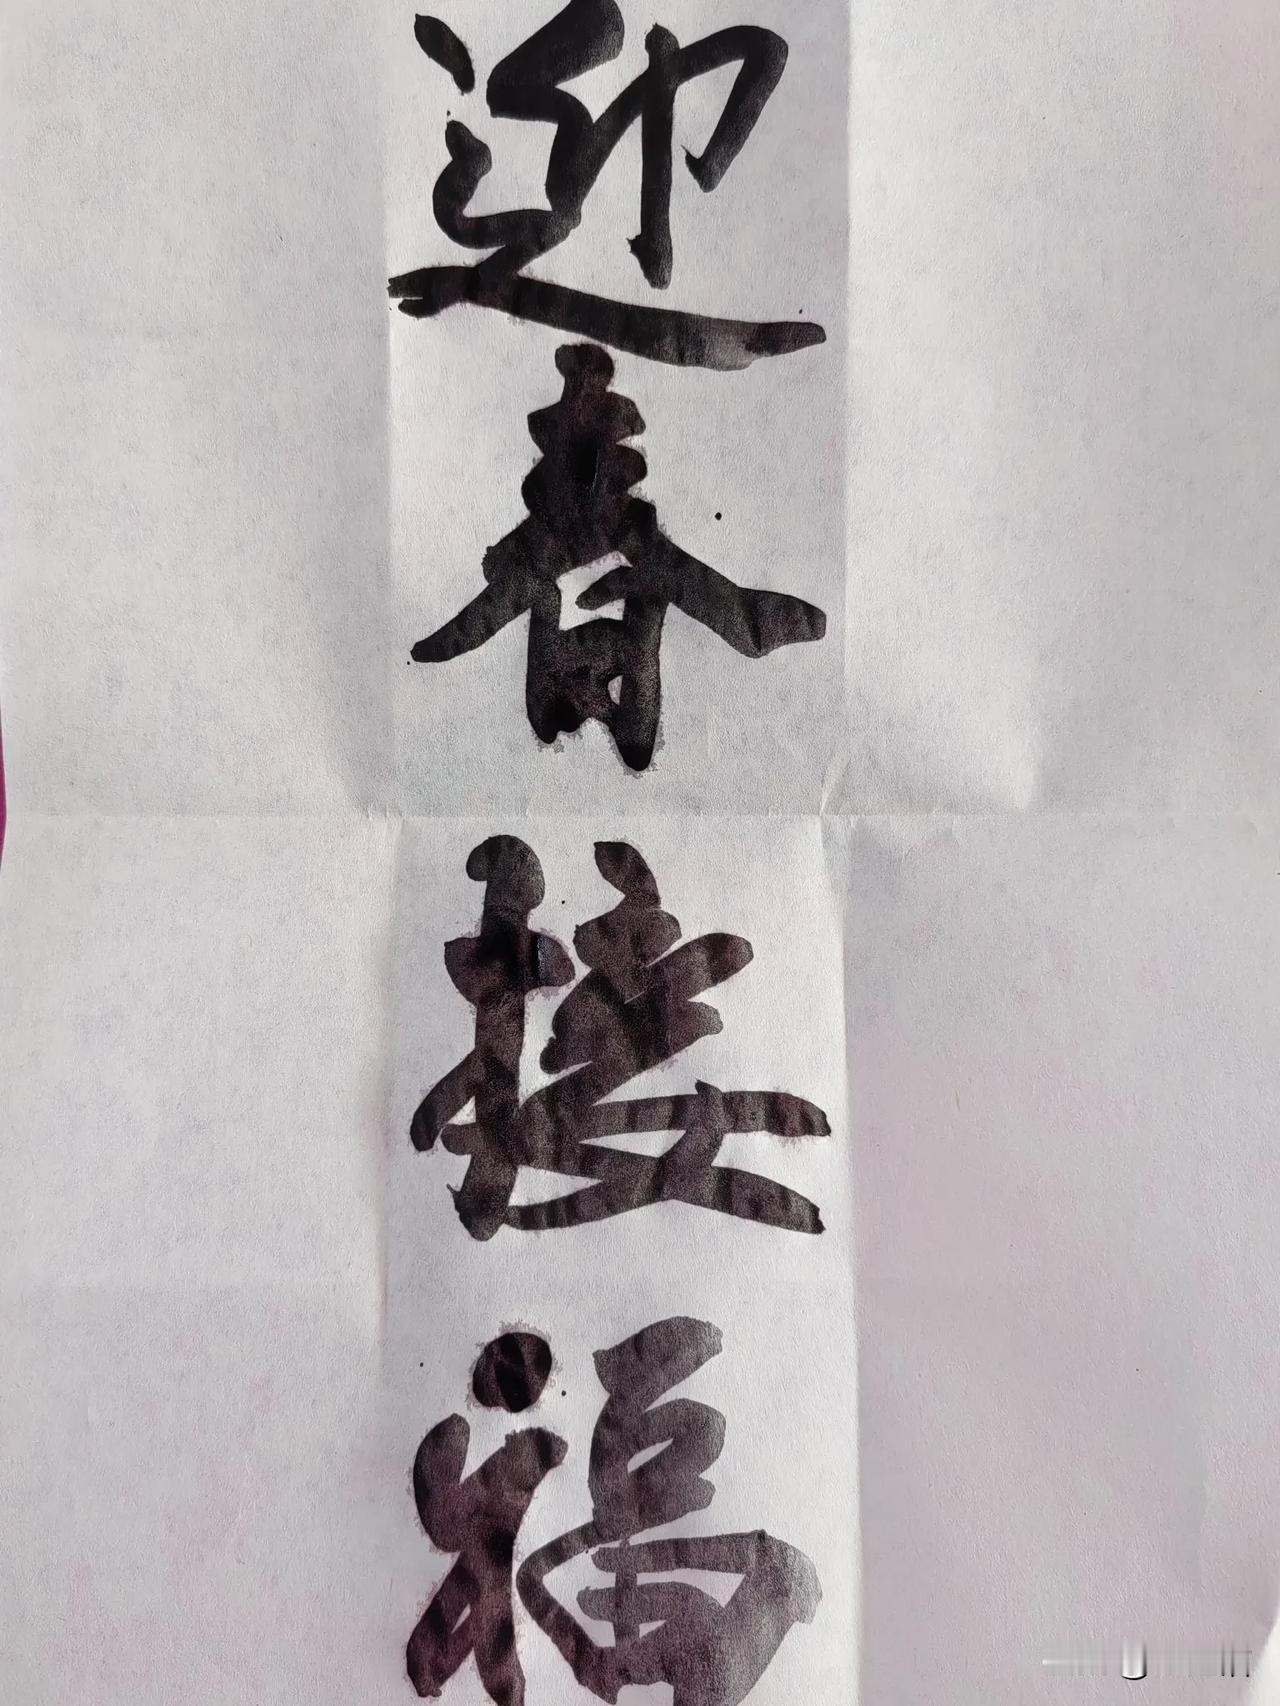 迎春接福